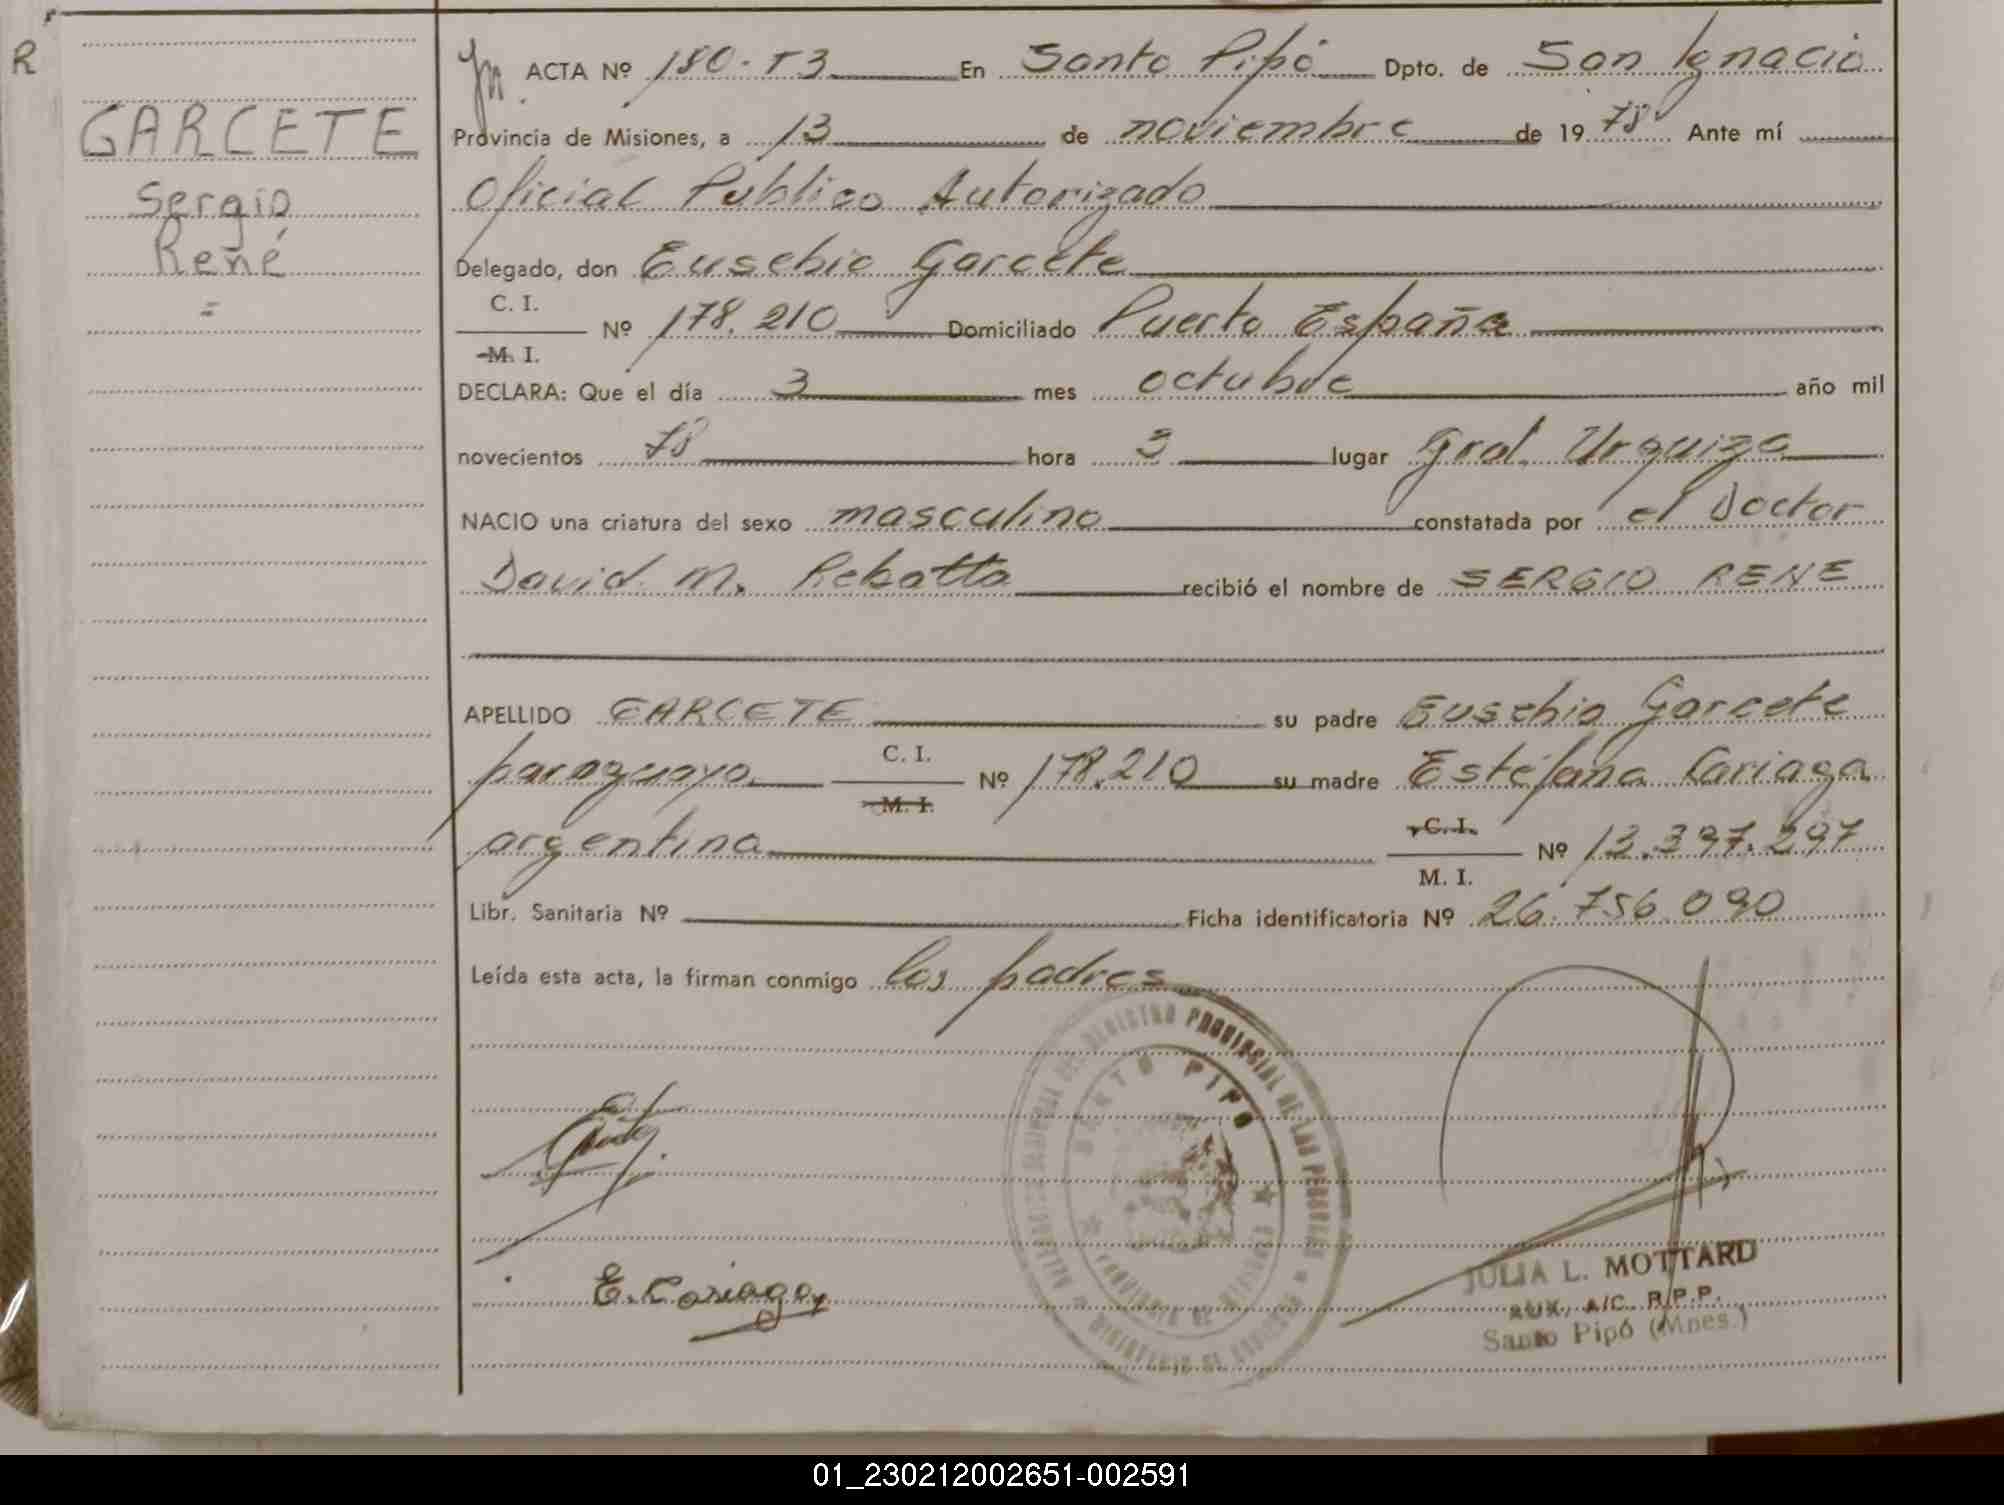 R
GARCETE
Sergio
René
=
ACTA Nº 180-T3 En Santo Pipó Dpto. de San Ignacio
Provincia de Misiones, a 13 de noviembre de 1978 Ante mí
Oficial Publico Autorizado
Delegado, don Eusebio Garcete
C. I.
M. I.
Nº 178.210 Domiciliado Puerto España
DECLARA: Que el día 3 mes octubre año mil
novecientos 78 hora 3 lugar Gral. Urquiza
NACIO una criatura del sexo masculino constatada por el Doctor
David M. Rebatta recibió el nombre de SERGIO RENE
APELLIDO GARCETE su padre Eusebio Garcete
paraguayo C. I. M. I. Nº 178.210 su madre Estéfana Cariaga
argentina C. I. M. I. Nº 13.397.297
Libr. Sanitaria Nº Ficha identificatoria Nº 26.756.090
Leída esta acta, la firman conmigo los padres
REGISTRO PROVINCIAL DE LAS PERSONAS
SANTO PIPO
PROVINCIA DE MISIONES
MINISTERIO DE GOBIERNO
E. Cariaga
JULIA L. MOTTARD
AUX. A/C. R.P.P.
Santo Pipó (Mnes.)
01_230212002651-002591